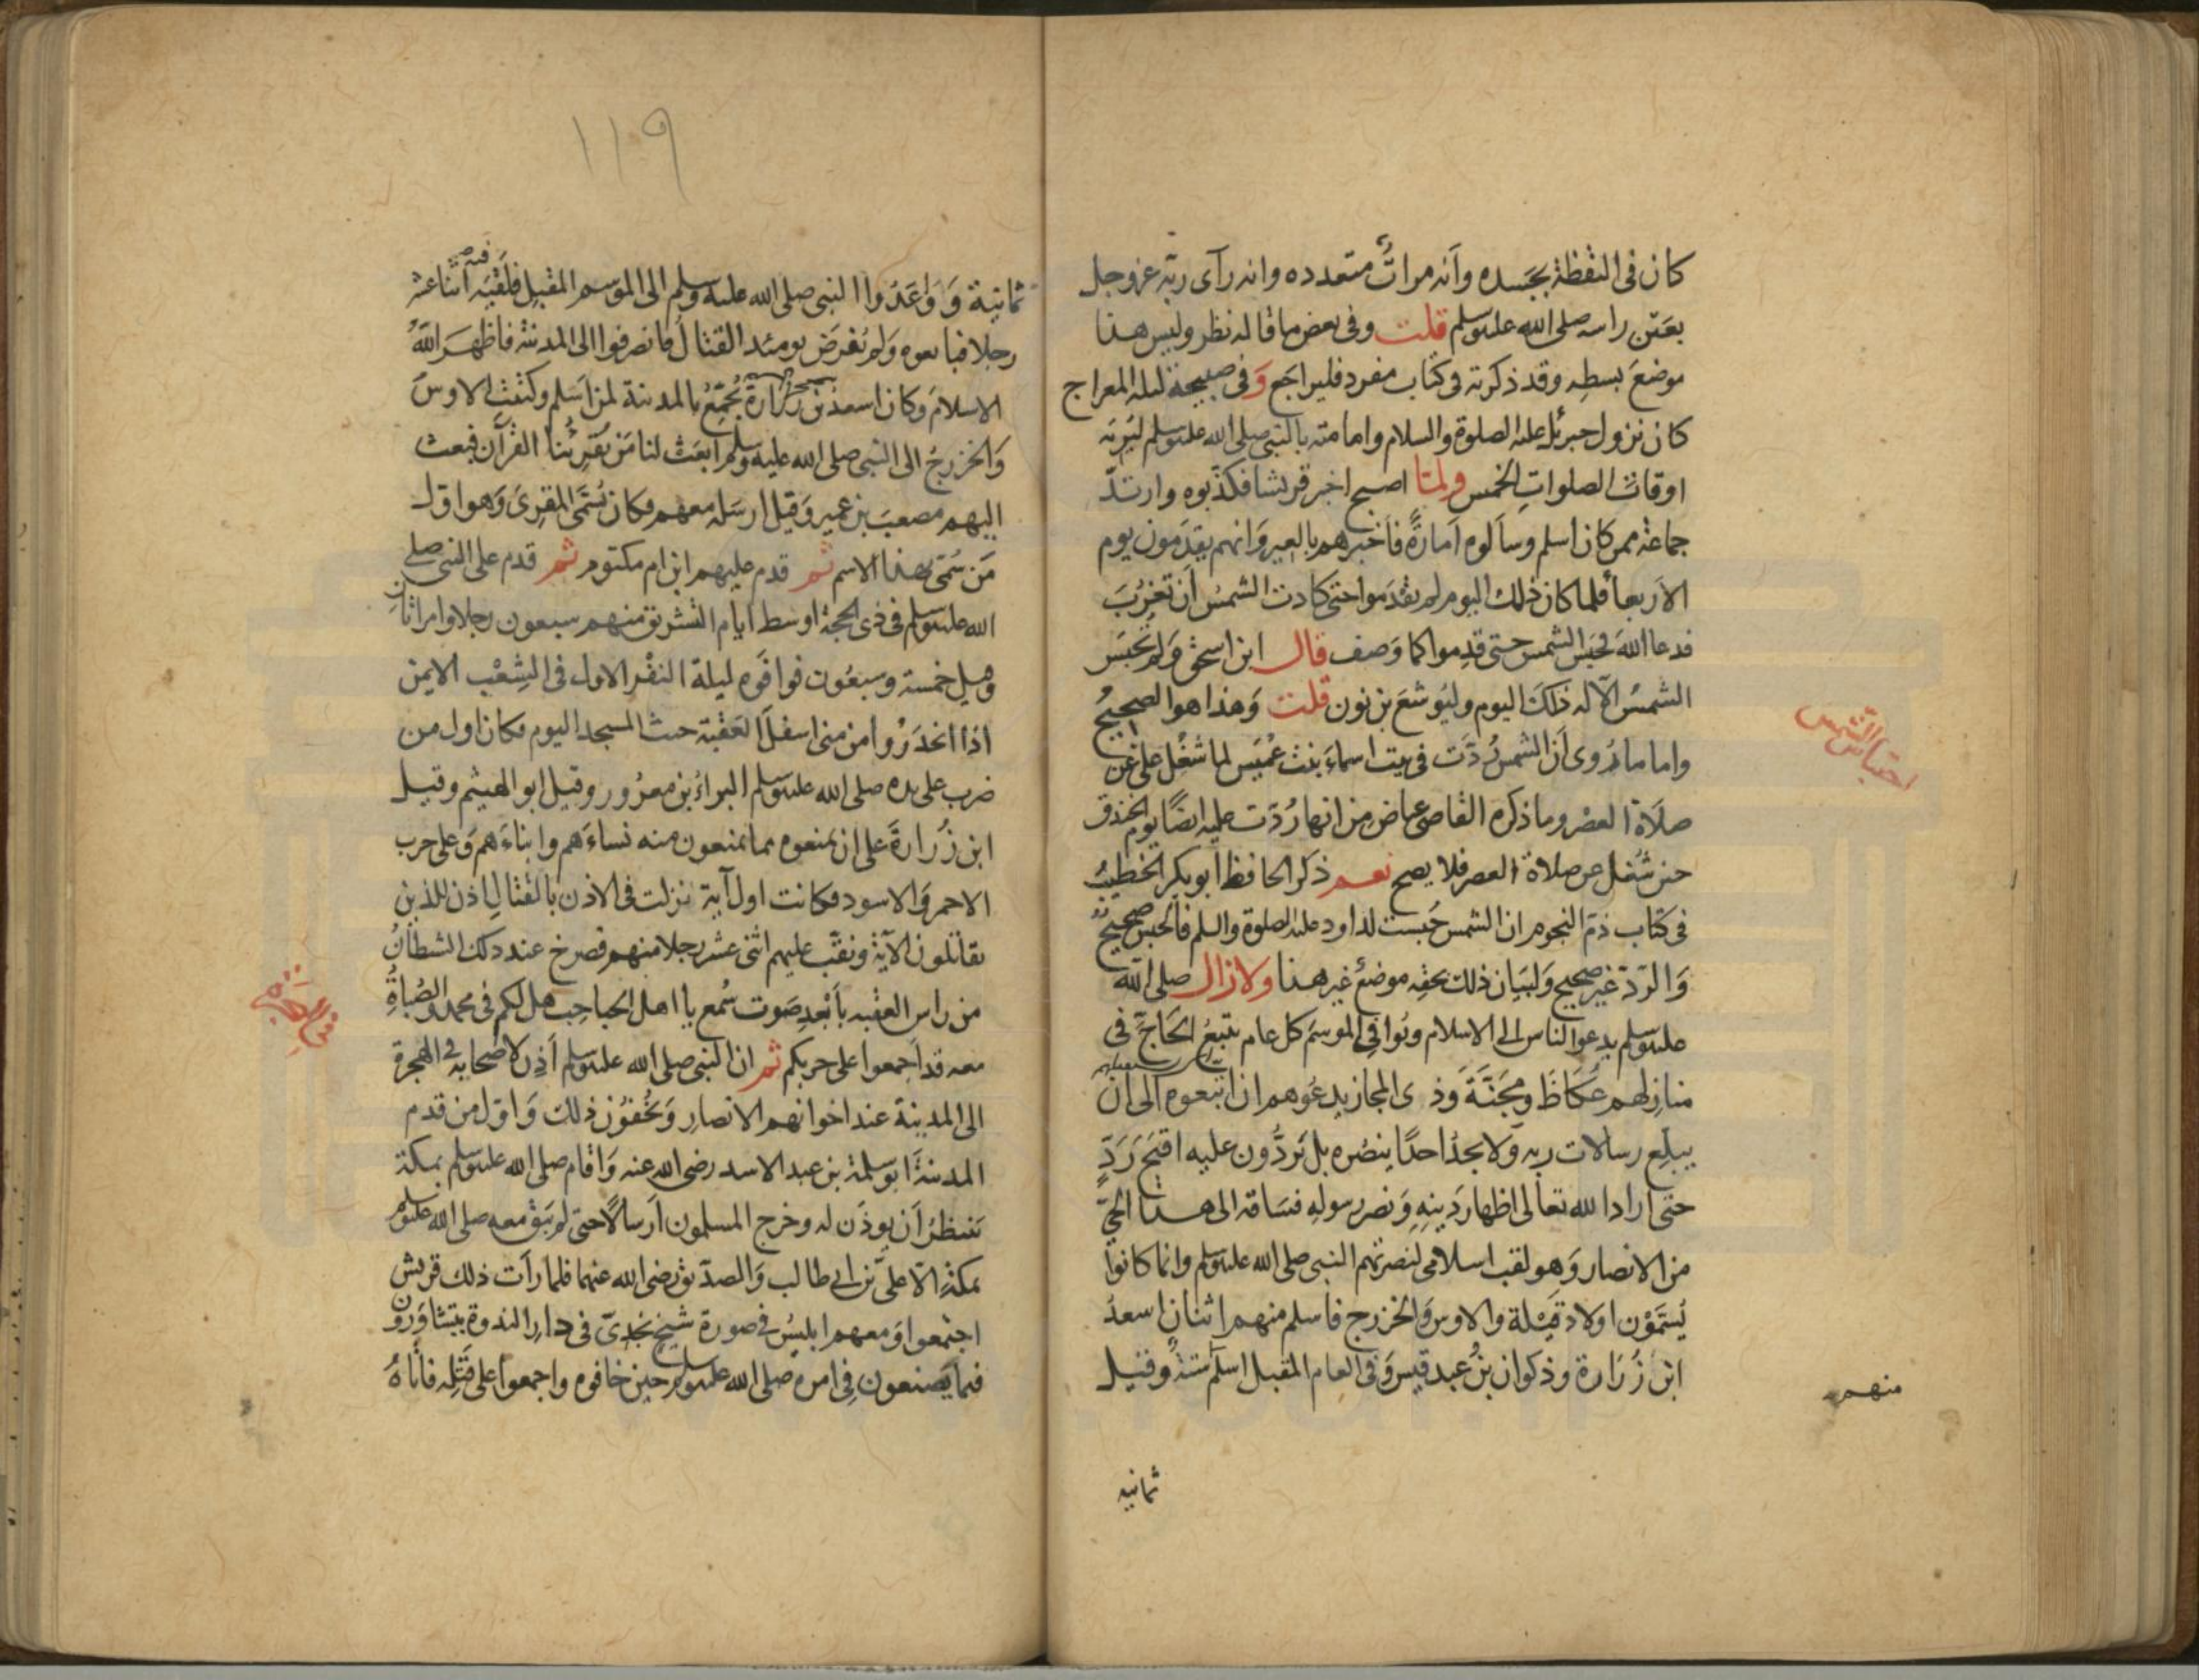 كان في اليقظة بجسده وأنه مرات متعدده وانه رآى ربّه عز وجل
بعين راسه صلى الله عليه وسلم قلت وفي بعض ما قاله نظر وليس هذا
موضعَ بسطِه وقد ذكرته في كتاب مفرد فليراجع وَفي صبيحة ليلة المعراج
كان نزول جبرئل عليه الصلوة والسلام وامامته بالنبي صلى الله عليه وسلم ليريه
اوقات الصلواتِ الخمس ولمّا اصبح اخبر قريشا فكذّبوه وارتدّ
جماعة ممن كان اسلم وسألوه اَمارةً فأخبرهم بالعير وَانهم يقدَمون يوم
الاَربعأ فلما كان ذلك اليوم لم يقدَموا حتى كادت الشمسُ اَن تغرُبَ
فدعا اللهَ فحَبَس الشمس حتى قدِموا كما وَصف قال ابن اسحق وَلم تحبَس
الشمسُ الاّ له ذلكَ اليوم وليُوشَعَ بن نون قلت وَهذا هو الصحيحُ
واما ما رُوى اَن الشمسَ رُدَّت في بيت اسماءَ بنت عُمَيس لما شُغِل علي عن
صلاَة العصر وما ذكره القاضى عياض مِن انها رُدّت عليه ايضًا يوم الخندق
حين شُغل عن صلاة العصر فلا يصح نعم ذكر الحافظ ابو بكر الخطيبُ
في كتاب ذمّ النجوم ان الشمس حُبست لداود عليه الصلوة والسلم فالحبس صحيحٌ
وَالردّ غير صحيح وَلبَيان ذلك بحقِه موضعٌ غير هذا ولا زال صلى الله
عليه وسلم يدعوا الناس الى الاسلام ويُوافِي الموسَم كل عام يتبعُ الحَاجَّ في
منازِلهم عُكَاظَ ومَجَنَّةَ وَذى المجاز يدعُوهم ان اتبعوه الى ان
يبلِّغ رسالات ربه وَلا يجدُ احدًا ينصُره بل يَردُّون عليه اقبَحَ رَدٍّ
حتى اراد الله تعالى اظهارَ دِينِهِ وَنصر رسولِهِ فسَاقه الى هذا الحَيِّ
من الانصار وَهو لقب اسلامى لنصرتهم النبى صلى الله عليه وسلم وانما كانوا
يُسَمَّوْن اولادَ قَيْلة والاوس وَالخزرج فاسلم منهم اثنان اسعدُ
ابن زُرَارة وذكوان بنُ عبد قيس وَفى العام المقبل اسلَم ستةٌ وقيل
احتباس الشمس
منهم
ثمانيه
١١٩
ثمانية وَوَاعَدُوا النبى صلى الله عليه وسلم الى الموسم المقبل فلَقيَه فيه اثناعشر
رجلا فبايعوه وَلم يُفرَض يومئذ القتالُ فانصرفوا الى المدينة فاظهرَ اللهُ
الاسلامَ وكان اسعدُ بن زُرَارة يُجَمّعُ بالمدينة بمن اَسلم وكتبت الاوسُ
وَالخزرجُ الى النبى صلى الله عليه وسلم ابعَث لنا مَن يُقرِئُنا القرآن فبعث
اليهم مصعبَ بن عمير وَقيل ارسَله معهم فكان يُسَمَّى المقرئَ وَهو اوّل
مَن سُمّى بهذا الاسم ثم قدم عليهم ابن ام مكتوم ثم قدم على النبى صلى
الله عليه وسلم فى ذى الحجة اوسط ايام التشريق منهم سبعون رجلا وامراتان
وقيل خمسة وسبعُون فوافَوه ليلة النفْر الاول فى الشِعْب الايمن
اذا انحَدَرُوا من منى اسفلَ العَقَبة حيث المسجد اليوم فكان اول من
ضرب على يده صلى الله عليه وسلم البراءُ بن معرُور وقيل ابو الهيثم وقيل
ابن زُرارةَ على ان يمنعوه مما يمنعون منه نساءَهم وابناءَهم وَعلى حرب
الاحمر وَالاسود فكانت اول آية نزلت فى الاذن بالقتالِ اُذن للذين
يقاتلون الآيةَ ونقّب عليهم اثنى عشر رجلا منهم فصرخ عند ذلك الشيطانُ
من راس العقبه بأبْعدِ صَوت سُمع يا اهل الجباجب هل لكم فى محمد والصُباةُ
معه قد اجمعوا على حربكم ثم ان النبى صلى الله عليه وسلم اَذِن لاصحابه فى الهجرة
الى المدينة عند اخوانهم الانصارِ وَيُخْفوُن ذلك وَاوّل من قدم
المدينةَ ابو سلمة بن عبد الاسد رضى الله عنه وَاقام صلى الله عليه وسلم بمكة
يَنتظرُ اَن يوذَن له وخرج المسلمون اَرسالاً حتى لم يَبق معه صلى الله عليه وسلم
بمكةِ الاّ علىُّ بن ابى طالب وَالصدّيق رضى الله عنهما فلما رأت ذلك قريش
اجتَمعوا وَمعهم ابليسُ فى صورة شيخٍ نجدىّ فى دارِ الندوة يتشاوَرون
فيما يَصنعون فِى امره صلى الله عليه وسلم حين خافوه واجمعوا على قَتلِه فأتاهُ